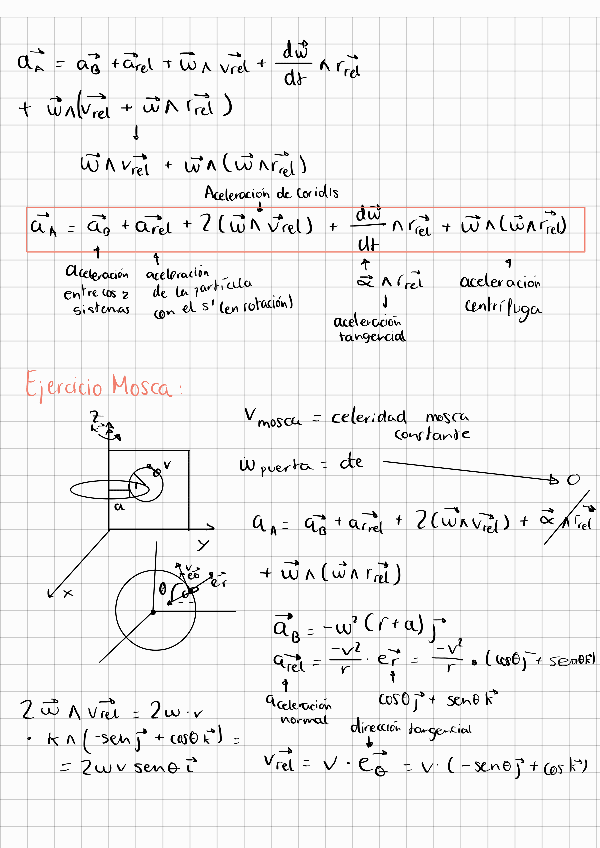 a⃗_A = a⃗_B + a⃗_rel + w⃗ ∧ v⃗_rel + dw⃗/dt ∧ r⃗_rel
+ w⃗ ∧ (v⃗_rel + w⃗ ∧ r⃗_rel)
↓
w⃗ ∧ v⃗_rel + w⃗ ∧ (w⃗ ∧ r⃗_rel)
Aceleración de coriolis
a⃗_A = a⃗_B + a⃗_rel + 2(w⃗ ∧ v⃗_rel) + dw⃗/dt ∧ r⃗_rel + w⃗ ∧ (w⃗ ∧ r⃗_rel)
aceleración entre los 2 sistemas
aceleración de la partícula con el s' (en rotación)
α⃗ ∧ r⃗_rel
aceleración tangencial
aceleración centrífuga
Ejercicio Mosca:
z
v
r
a
y
x
V_mosca = celeridad mosca constante
w_puerta = cte → 0
a_A = a⃗_B + a⃗_rel + 2(w⃗ ∧ v⃗_rel) + α⃗ ∧ r⃗_rel
+ w⃗ ∧ (w⃗ ∧ r⃗_rel)
v
e⃗_θ
e⃗_r
θ
a⃗_B = -w² (r+a) j⃗
a⃗_rel = -v²/r · e⃗_r = -v²/r · (cosθ j⃗ + senθ k⃗)
aceleración normal
cosθ j⃗ + senθ k⃗
dirección tangencial
v⃗_rel = v · e⃗_θ = v · (-senθ j⃗ + cos k⃗)
2 w⃗ ∧ v⃗_rel = 2w · v
· k ∧ (-sen j⃗ + cosθ k⃗) =
= 2wv senθ i⃗